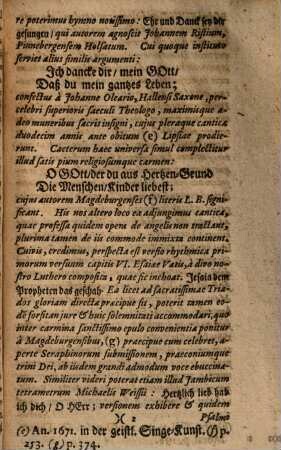 re poterimus hymno novissimo: Ehr und Danck sey dir
gesungen/ qui autorem agnoscit Johannem Ristium,
Pinnebergensem Holsatum. Cui quoque instituto
serviet alius similis argumenti:
Ich dancke dir/ mein GOtt/
Daß du mein gantzes Leben;
confectus à Johanne Oleario, Hallensi Saxone, per-
celebri superioris saeculi Theologo, maximisque a-
deo muneribus sacris insigni, cujus pleraque cantica
duodecim annis ante obitum (e) Lipsiae prodie-
runt. Caeterum haec universa simul complectitur
illud satis pium religiosumque carmen:
O GOtt/ der du aus Hertzen-Grund
Die Menschen/Kinder liebest;
cujus autorem Magdeburgenses (f) literis L. B. signi-
ficant. His nos altero loco ea adjungimus cantica,
quae professa quidem opera de angelis non tractant,
plurima tamen de iis commode immixta continent,
Cuivis, credimus, perspecta est versio rhythmica pri-
morum versuum capitis VI. Esaiae Vatis, a divo no-
stro Luthero composita, quae sic inchoat. Jesaia dem
Propheten das geschah. Ea licet ad sacratissimae Tria-
dos gloriam directa praecipue sit, poterit tamen eo-
dē forsitan jure & huic solemnitati accommodari, quo
inter carmina sanctissimo epulo convenientia ponitur
à Magdeburgensibus, (g) praecipue cum celebret, a-
perte Seraphinorum submissionem, praeconiumque
trini Dei, ab iisdem grandi admodum voce ebuccina-
tum. Similiter videri poterat etiam illud Jambicum
tetrametrum Michaelis Weissii: Hertzlich lieb hab
ich dich/ O HErr; versionem exhibere & quidem
)( 2 Psalmi
(e) An. 1671. in der geistl. Singe-Kunst. (f) p.
253. (g) p. 374.